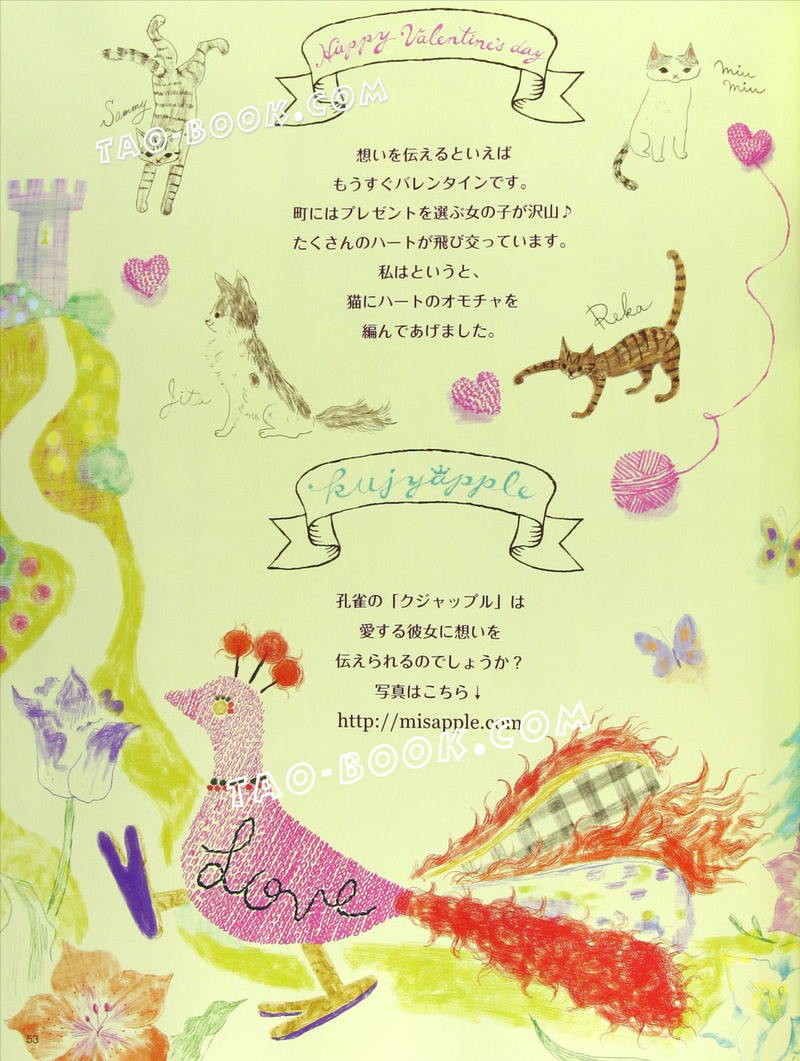 Happy Valentine's day
Sammy
miu
miu
TAO-BOOK.COM
想いを伝えるといえば
もうすぐバレンタインです。
町にはプレゼントを選ぶ女の子が沢山♪
たくさんのハートが飛び交っています。
私はというと、
猫にハートのオモチャを
編んであげました。
Reka
Jita
kujyapple
孔雀の「クジャップル」は
愛する彼女に想いを
伝えられるのでしょうか？
写真はこちら↓
http://misapple.com
TAO-BOOK.COM
Love
53